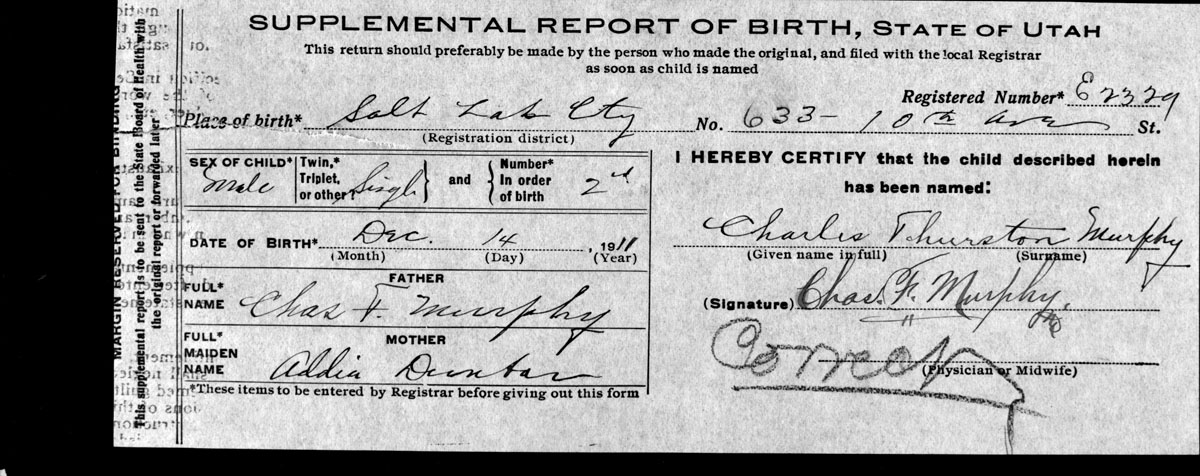 SUPPLEMENTAL REPORT OF BIRTH, STATE OF UTAH
This return should preferably be made by the person who made the original, and filed with the local Registrar
as soon as child is named
Registered Number* E2329
Place of birth* Salt Lake City No. 633- 10th Ave St.
(Registration district)
SEX OF CHILD* Male
Twin,* Triplet, or other? Single and Number* In order of birth 2nd
DATE OF BIRTH* Dec. 14, 1911
(Month) (Day) (Year)
FATHER
FULL* NAME Chas F. Murphy
MOTHER
FULL* MAIDEN NAME Addia Dunbar
*These items to be entered by Registrar before giving out this form
I HEREBY CERTIFY that the child described herein
has been named:
Charles Thurston Murphy
(Given name in full) (Surname)
(Signature) Chas. F. Murphy
(Physician or Midwife)
MARGIN RESERVED FOR BINDING
This supplemental report is to be sent to the State Board of Health with
the original report or forwarded later